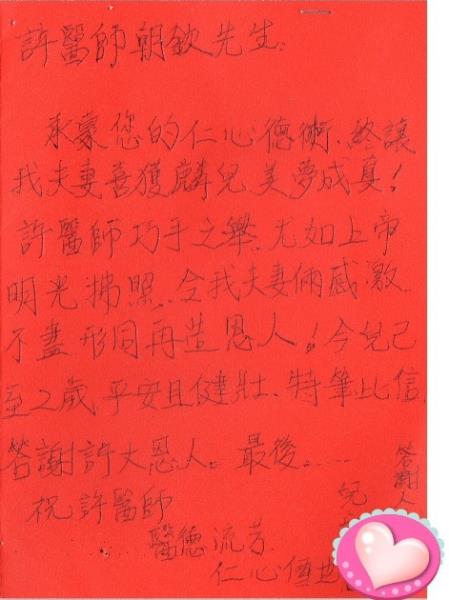 許醫師朝欽先生.
承蒙您的仁心德術、終讓
我夫妻喜獲麟兒、美夢成真!
許醫師巧手之舉、尤如上帝
明光拂照、令我夫妻倆感激
不盡形同再造恩人!今兒已
至2歲平安且健壯、特筆比信
答謝許大恩人。最後......
祝許醫師
醫德流芳
仁心傳世
答謝人
兒